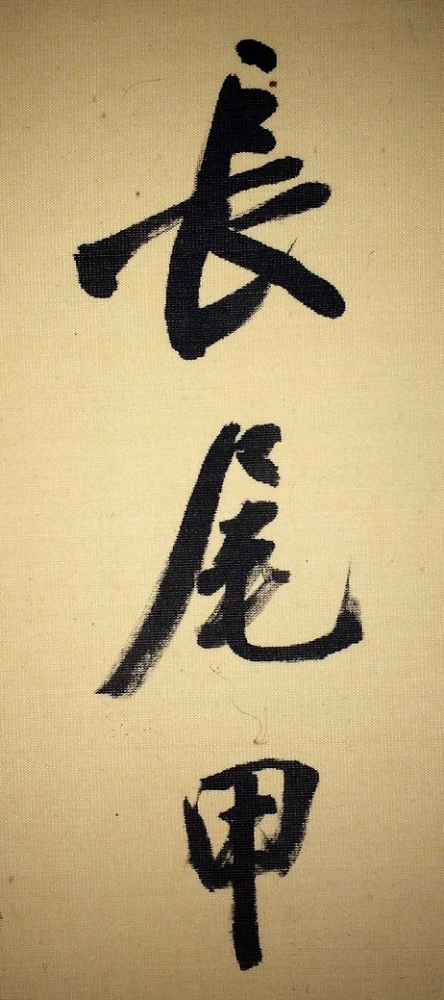 長尾甲